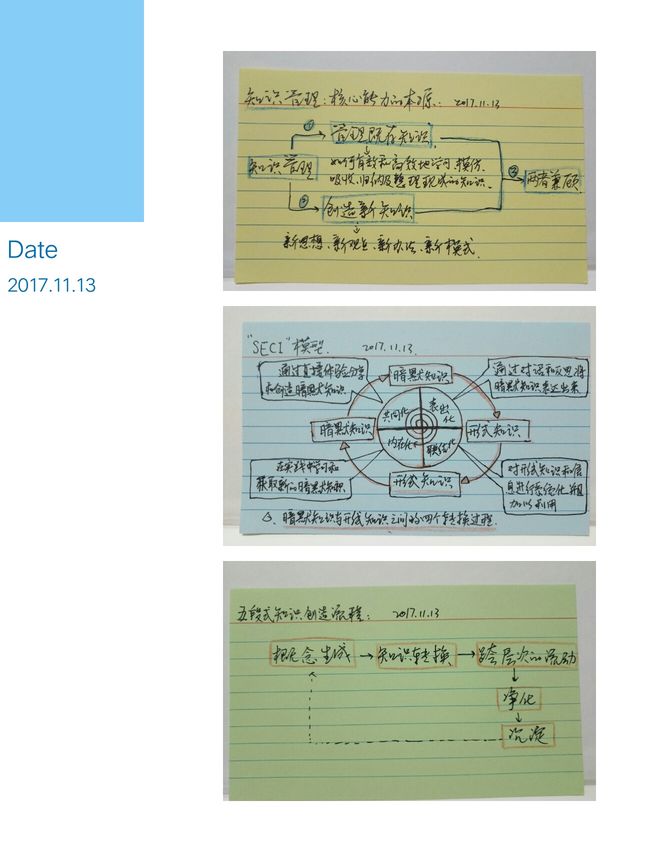 Date
2017.11.13
知识管理：核心能力的本源. 2017.11.13
①
管理既存知识
如何有效和高效地学习、模仿、
吸收、归纳及整理现成的知识.
知识管理
③
两者兼顾
②
创造新知识
新思想、新观点、新办法、新模式.
"SECI"模型. 2017.11.13.
通过直接体验分享
和创造暗黑默知识
暗黑默知识
通过对话和反思将
暗黑默知识表达出来
共同化
表出化
暗黑默知识
形式知识
内在化
联结化
在实践中学习和
获取新的暗黑默知识
形式知识
对形式知识和信
息进行系统化并且
加以利用
△. 暗黑默知识与形式知识之间的四个转换过程.
五段式知识创造流程： 2017.11.13
概念生成
知识转换
跨层次的流动
净化
沉淀